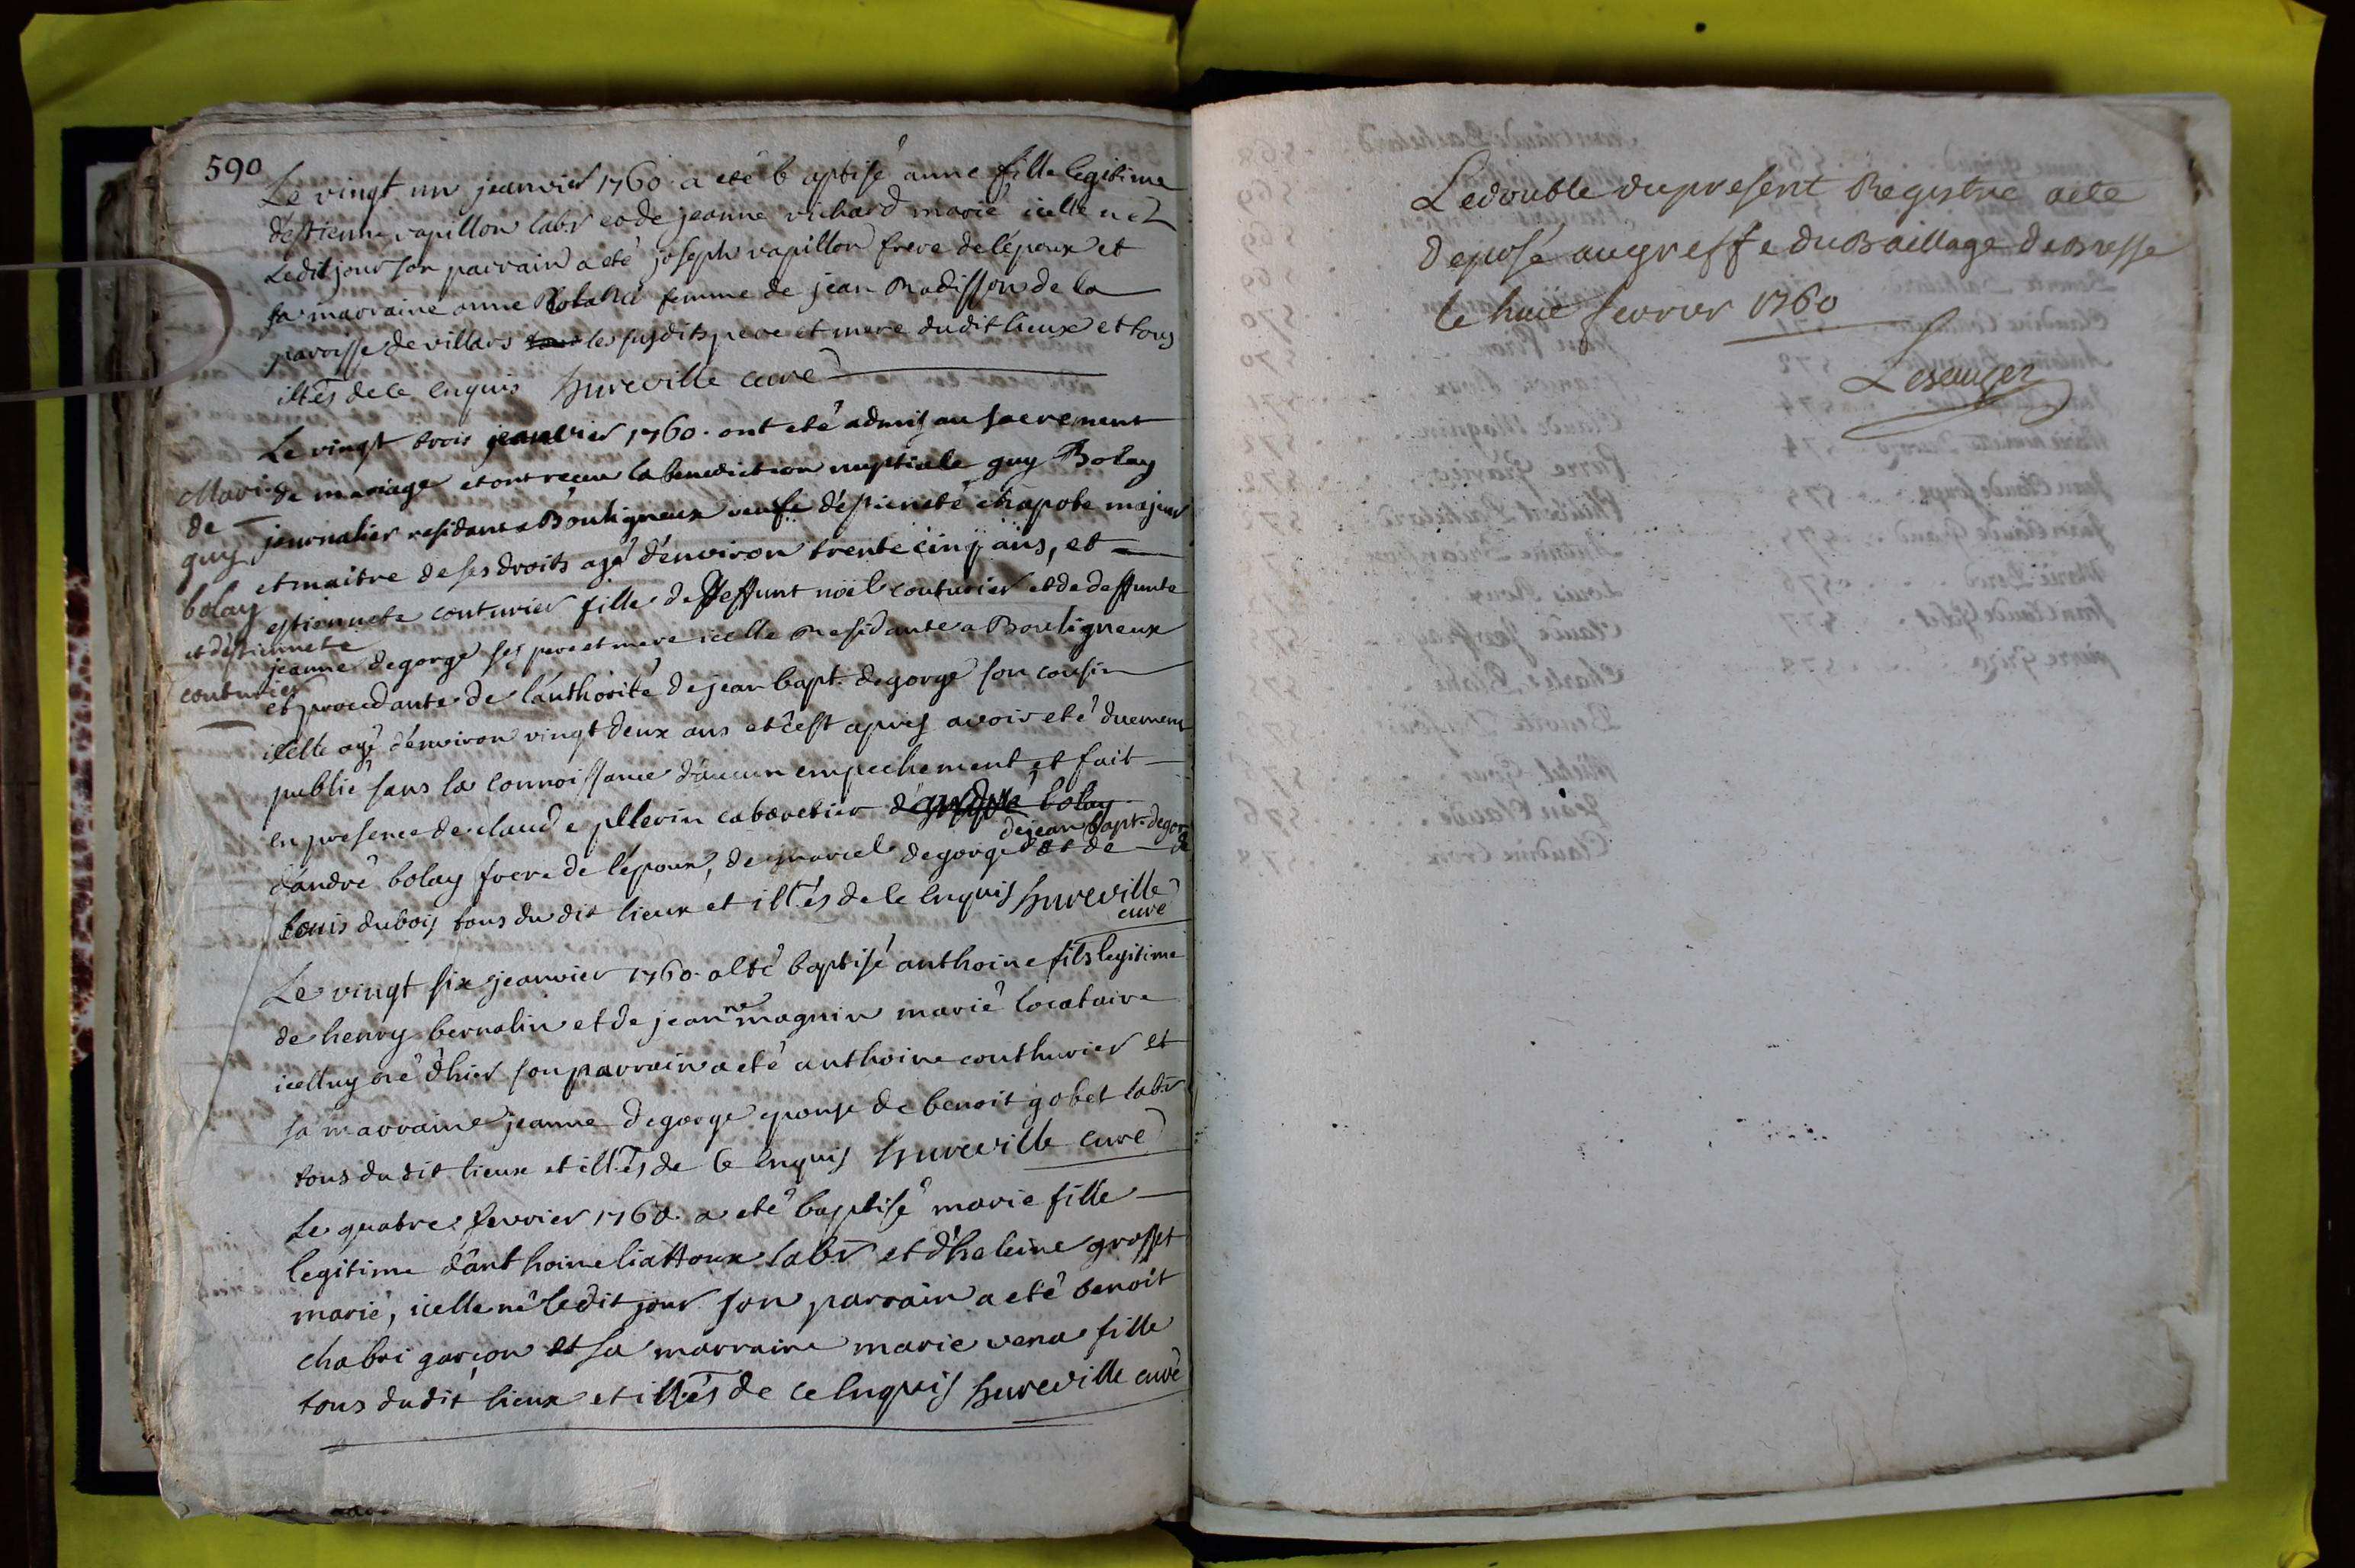 590
Le vingt un jeanvier 1760. a eté baptisé anne fille legitime
d'estienne vapillon labr et de jeanne richard marié icelle nez
Ledit jour son parrain a eté joseph vapillon frere de l'époux et
sa marraine anne femme de jean Radisson de la
paroisse de villars les susdits pere et mere du dit lieux et tous
iltés de ce enquis hureville curé
Le vingt trois jeanvier 1760. ont eté admis au sacrement
de mariage et ont reçeu la benediction nuptiale guy Bolay
journalier residant a Bouligneux veufe d'estienete chapote majeur
et maitre de ses droits agé d'environ trente cinq ans, et
estiennete couturier fille de deffunt noël couturier et de deffunte
jeanne degorge ses pere et mere icelle Residante a Bouligneux
et procedante de l'authorité de jean bapt. degorge son cousin
icelle agé d'environ vingt deux ans et c'est apres avoir eté duement
publié sans la connoissance d'aucun empechement et fait
en presence de claude pllerin cabaretier bolay
d'andré bolay frere de l'époux, de marcel degorge de jean bapt. degorge et de
louis dubois tous du dit lieux et illtés de ce enquis hureville
curé
Mari.
de
guy
bolay
et d'estiennete
couturier
Le vingt six jeanvier 1760. a eté baptisé anthoine fils legitime
de henry bernalin et de jeanne magnin marié locataire
icelluy né d'hier son parrain a eté anthoine couthurier et
sa marraine jeanne degorge epouse de benoit gobet labr
tous du dit lieux et illtés de ce enquis hureville curé
Le quatre fevrier 1760. a eté baptisé marie fille
legitime d'anthoine liattoux labr et d'heleine grosset
marié, icelle né ledit jour son parrain a eté benoit
chabri garçon et sa marraine marie vena fille
tous du dit lieux et illtés de ce enquis hureville curé
Le double du present Registre a ete
deposé au greffe du Baillage de Bresse
le huit fevrier 1760